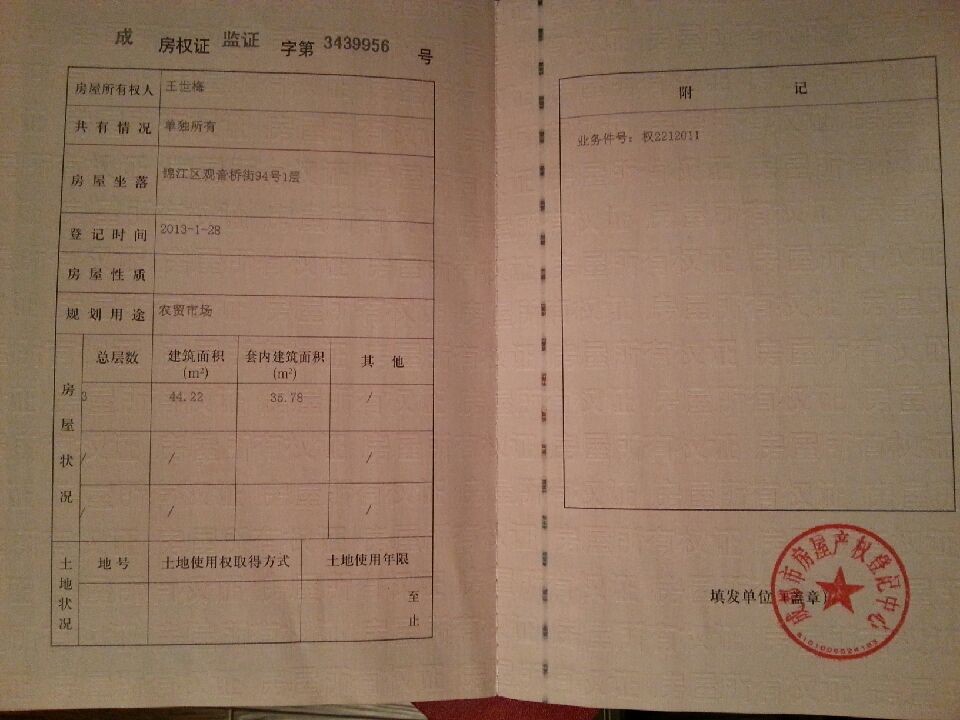 成 房权证 监证 字第 3439956 号
房屋所有权人 王世梅
共有情况 单独所有
房屋坐落 锦江区观音桥街94号1层
登记时间 2013-1-28
房屋性质
规划用途 农贸市场
房屋状况
总层数 建筑面积(m²) 套内建筑面积(m²) 其他
3 44.22 35.78 /
/ / /
/ / /
土地状况
地号 土地使用权取得方式 土地使用年限
至
止
附记
业务件号：权2212011
填发单位（盖章）
成都市房屋产权登记中心